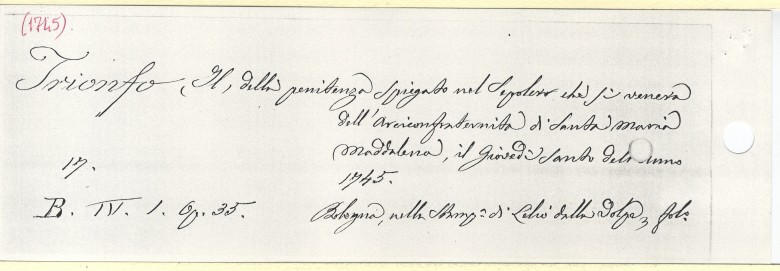 (1745).
Trionfo, Il, della penitenza spiegato nel Sepolcro che si venera
dell'Arciconfraternita di Santa Maria
Maddalena, il Giovedì Santo dell'anno
17.
1745.
B. IV. 1. Op. 35. Bologna, nella Stamp.a di Lelio dalla Volpe, fol.